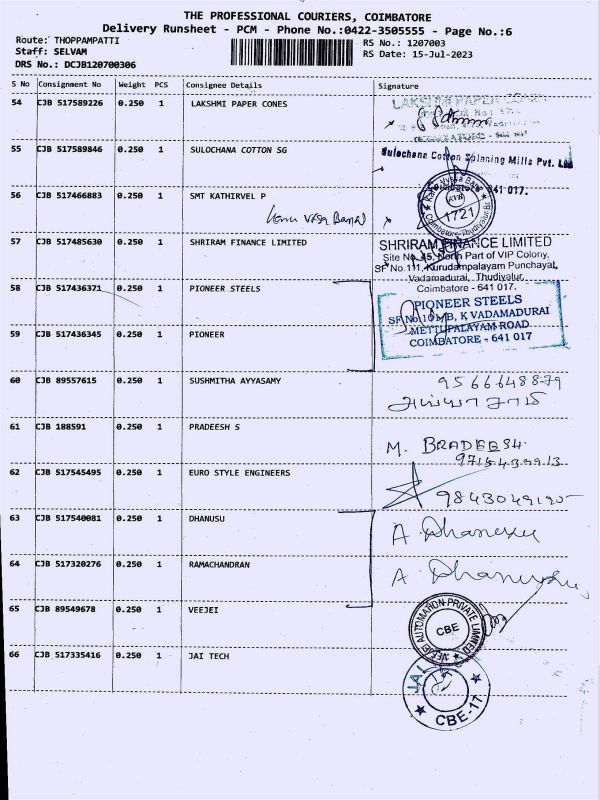 THE PROFESSIONAL COURIERS, COIMBATORE
Delivery Runsheet - PCM - Phone No.:0422-3505555 - Page No.:6
Route: THOPPAMPATTI RS No.: 1207003
Staff: SELVAM RS Date: 15-Jul-2023
DRS No.: DCJB120700306
S No Consignment No Weight PCS Consignee Details Signature
54 CJB 517589226 0.250 1 LAKSHMI PAPER CONES
LAKSHMI PAPER CONES
55 CJB 517589846 0.250 1 SULOCHANA COTTON SG
Sulochana Cotton Spinning Mills Pvt. Ltd
Coimbatore - 641 017.
56 CJB 517466883 0.250 1 SMT KATHIRVEL P
KVB
1721
57 CJB 517485630 0.250 1 SHRIRAM FINANCE LIMITED
SHRIRAM FINANCE LIMITED
Site No. 45, North Part of VIP Colony,
SF No.111, Kurudampalayam Punchayat,
Vadamadurai, Thudiyalur,
Coimbatore - 641 017.
58 CJB 517436371 0.250 1 PIONEER STEELS
PIONEER STEELS
SF No 10 MB, K VADAMADURAI
METTUPALAYAM ROAD
COIMBATORE - 641 017
59 CJB 517436345 0.250 1 PIONEER
60 CJB 89557615 0.250 1 SUSHMITHA AYYASAMY
9566648879
அய்யாசாமி
61 CJB 188591 0.250 1 PRADEESH S
M. BRADEESH.
62 CJB 517545495 0.250 1 EURO STYLE ENGINEERS
63 CJB 517540081 0.250 1 DHANUSU
A Dhanusu
64 CJB 517320276 0.250 1 RAMACHANDRAN
A Dhanusu
65 CJB 89549678 0.250 1 VEEJEI
VEEJEI AUTOMATION PRIVATE LIMITED
CBE
66 CJB 517335416 0.250 1 JAI TECH
JAI
CBE-17